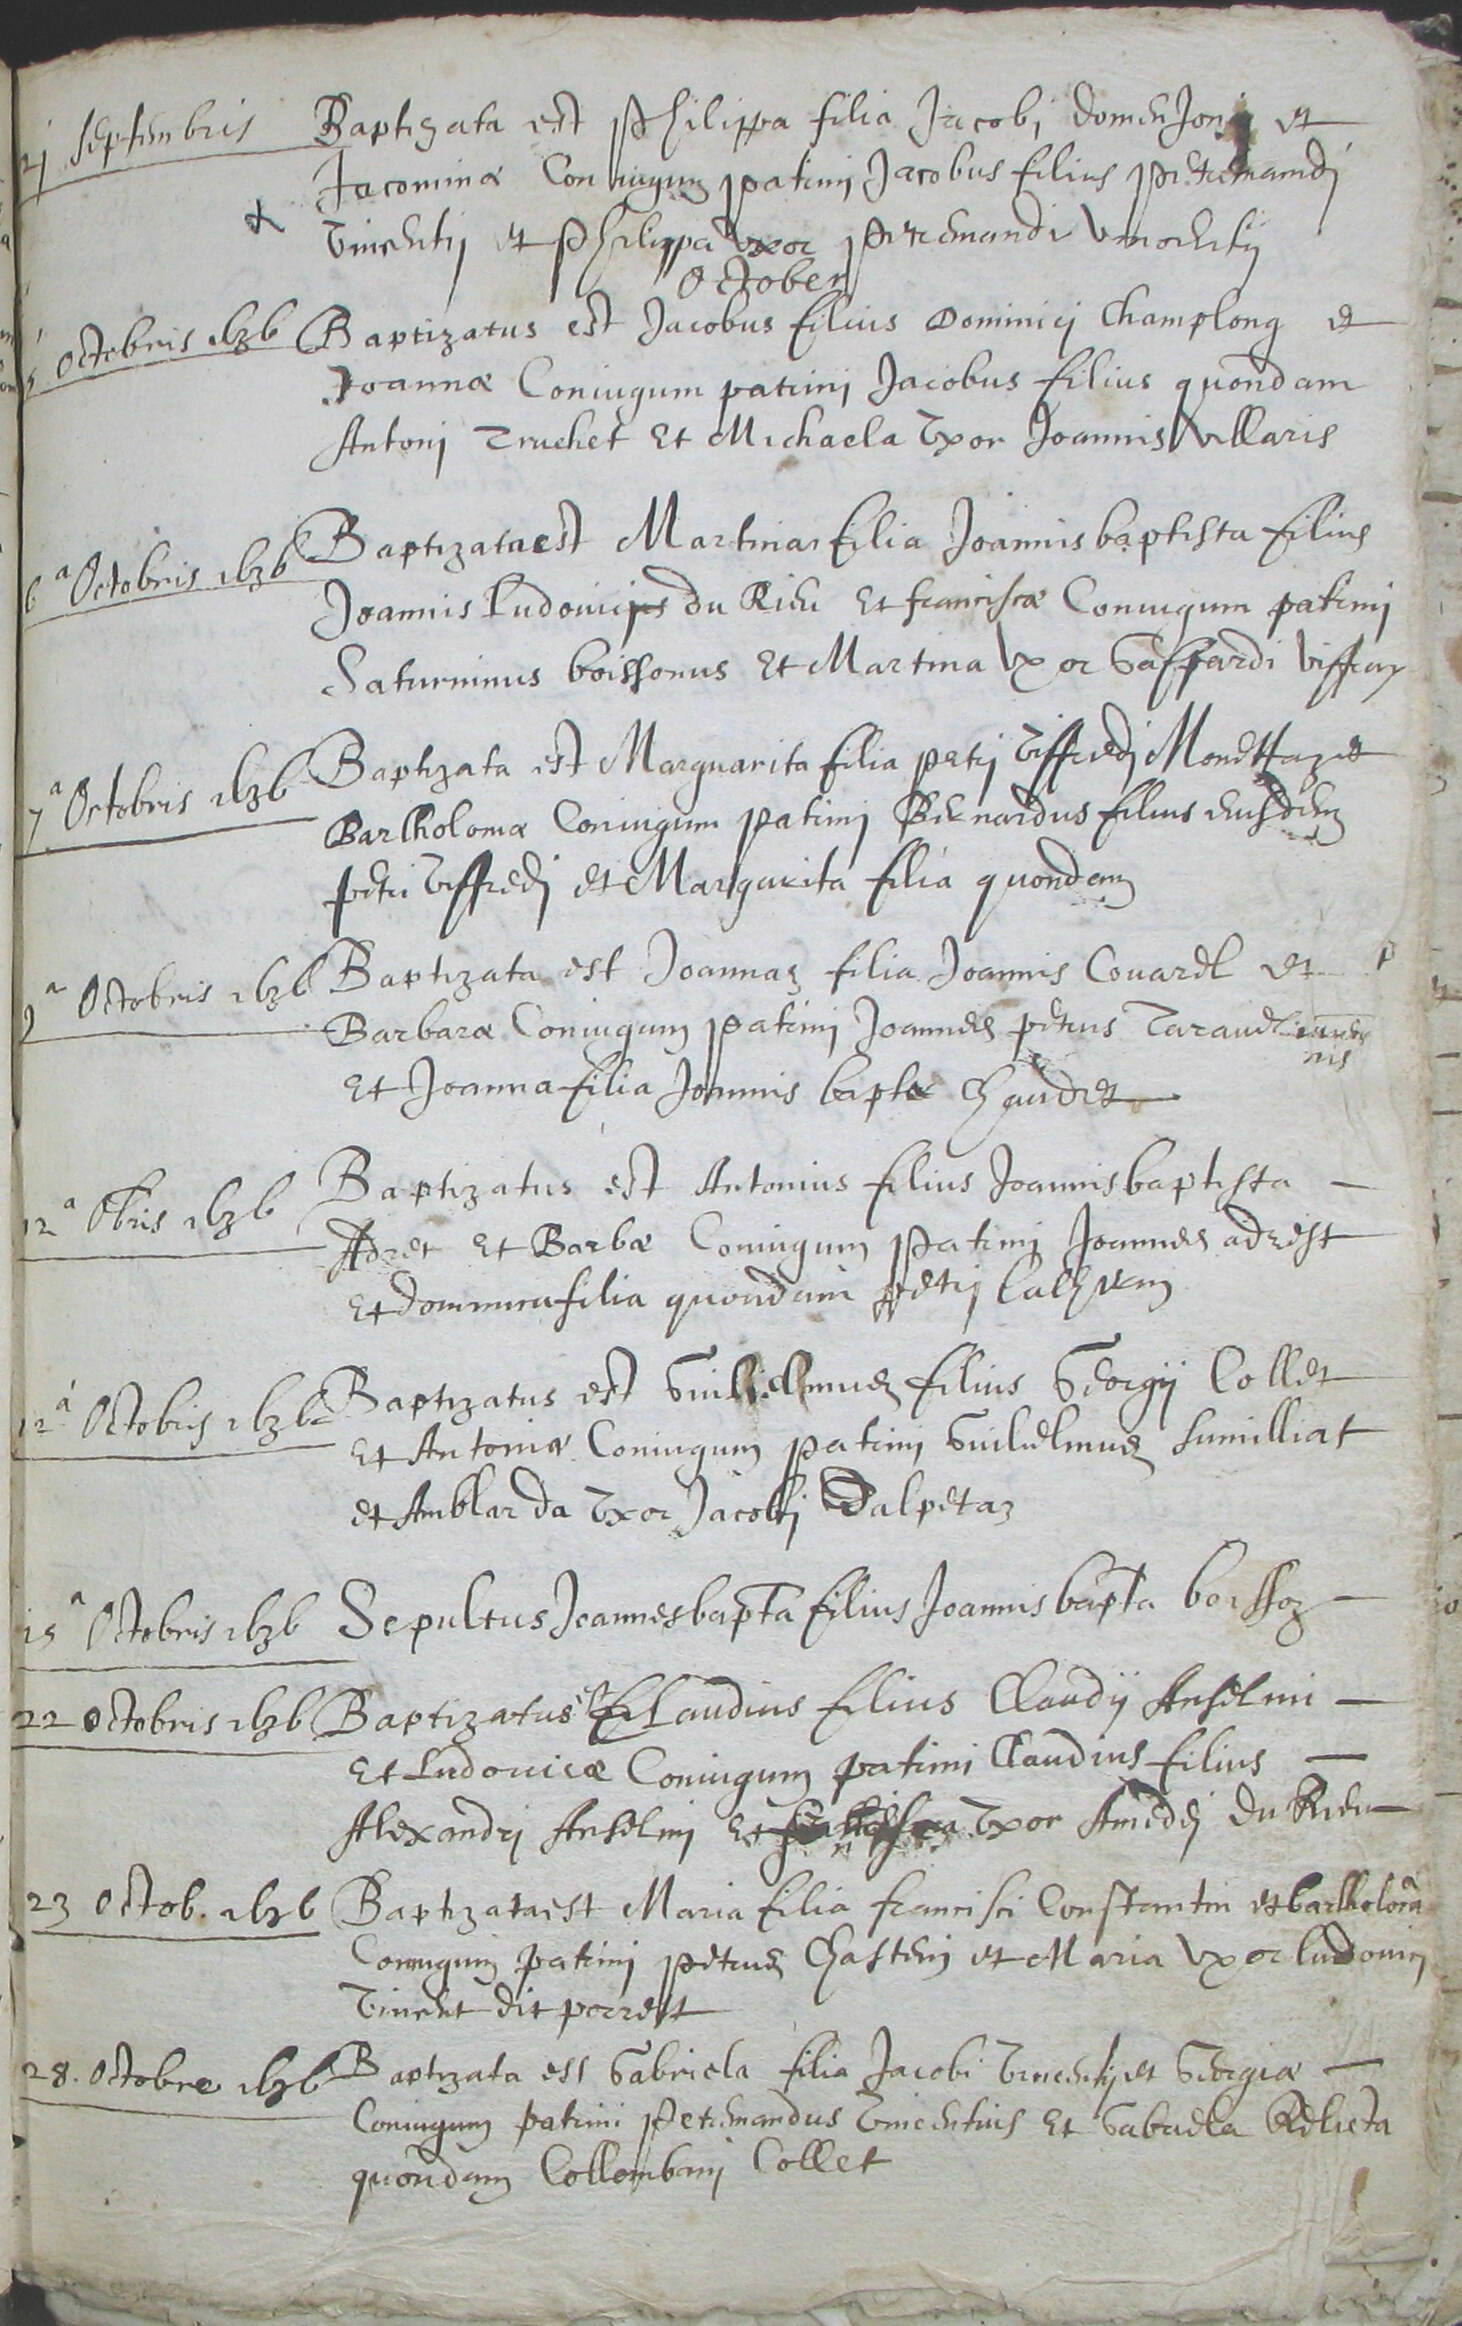 21 Septembris Baptizata est Philippa filia Jacobi domenjoni et
Jacominæ Coniugum patrini Jacobus filius petremandi
Vincentij et Philippa Vxor petremandi Vincentij
October
5 Octobris 1636 Baptizatus est Jacobus filius Dominici Champlong et
Joannæ Coniugum patrini Jacobus filius quondam
Antonij Truchet Et Michaela Vxor Joannis Villaris
6a Octobris 1636 Baptizata est Martina filia Joannis baptista filius
Joannis Ludovici du Rieu Et franciscæ Coniugum patrini
Saturninus boissonus Et Martina Vxor Gaspardi Viffray
7a Octobris 1636 Baptizata est Marguarita filia petrj Viffredj et
Bartholomæ Coniugum patrini Bernardus filius eiusdem
petri Viffredj et Margarita filia quondam
9a Octobris 1636 Baptizata est Joanna filia Joannis Couardl et
Barbaræ Coniugum patrini Joannes petrus
Et Joanna filia Joannis baptæ Chaudet
12a 8bris 1636 Baptizatus est Antonius filius Joannis baptista
Adret Et Barbæ Coniugum patrini Joannes adrest
Et dominica filia quondam petrj
12a Octobris 1636 Baptizatus est Guilielmus filius Georgij Collet
Et Antoniæ Coniugum patrini Guilielmus Sumilliat
et Amblarda Vxor Jacobi Dalpetaz
15a Octobris 1636 Sepultus Joannes bapta filius Joannis bapta boissoz
22 Octobris 1636 Baptizatus est Claudius filius Claudij Anselmi
Et Ludovicæ Coniugum patrini Claudius filius
Alexandrj Anselmj Et Vxor Amedej du Rieu
23 Octob. 1636 Baptizata est Maria filia francisci Constantin et bartholomea
Coniugum patrini petrus Chasten et Maria Vxor ludovici
Vincent dit perret
28. Octobre 1636 Baptizata est Gabriela filia Jacobi Vincentij et Georgiæ
Coniugum patrini petremandus Vincentius Et Gabriela Relicta
quondam Collombani Collet